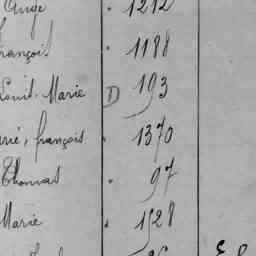 Ange 1212
françois 1188
Louis-Marie D 193
françois 1370
Thomas 97
Marie 1528